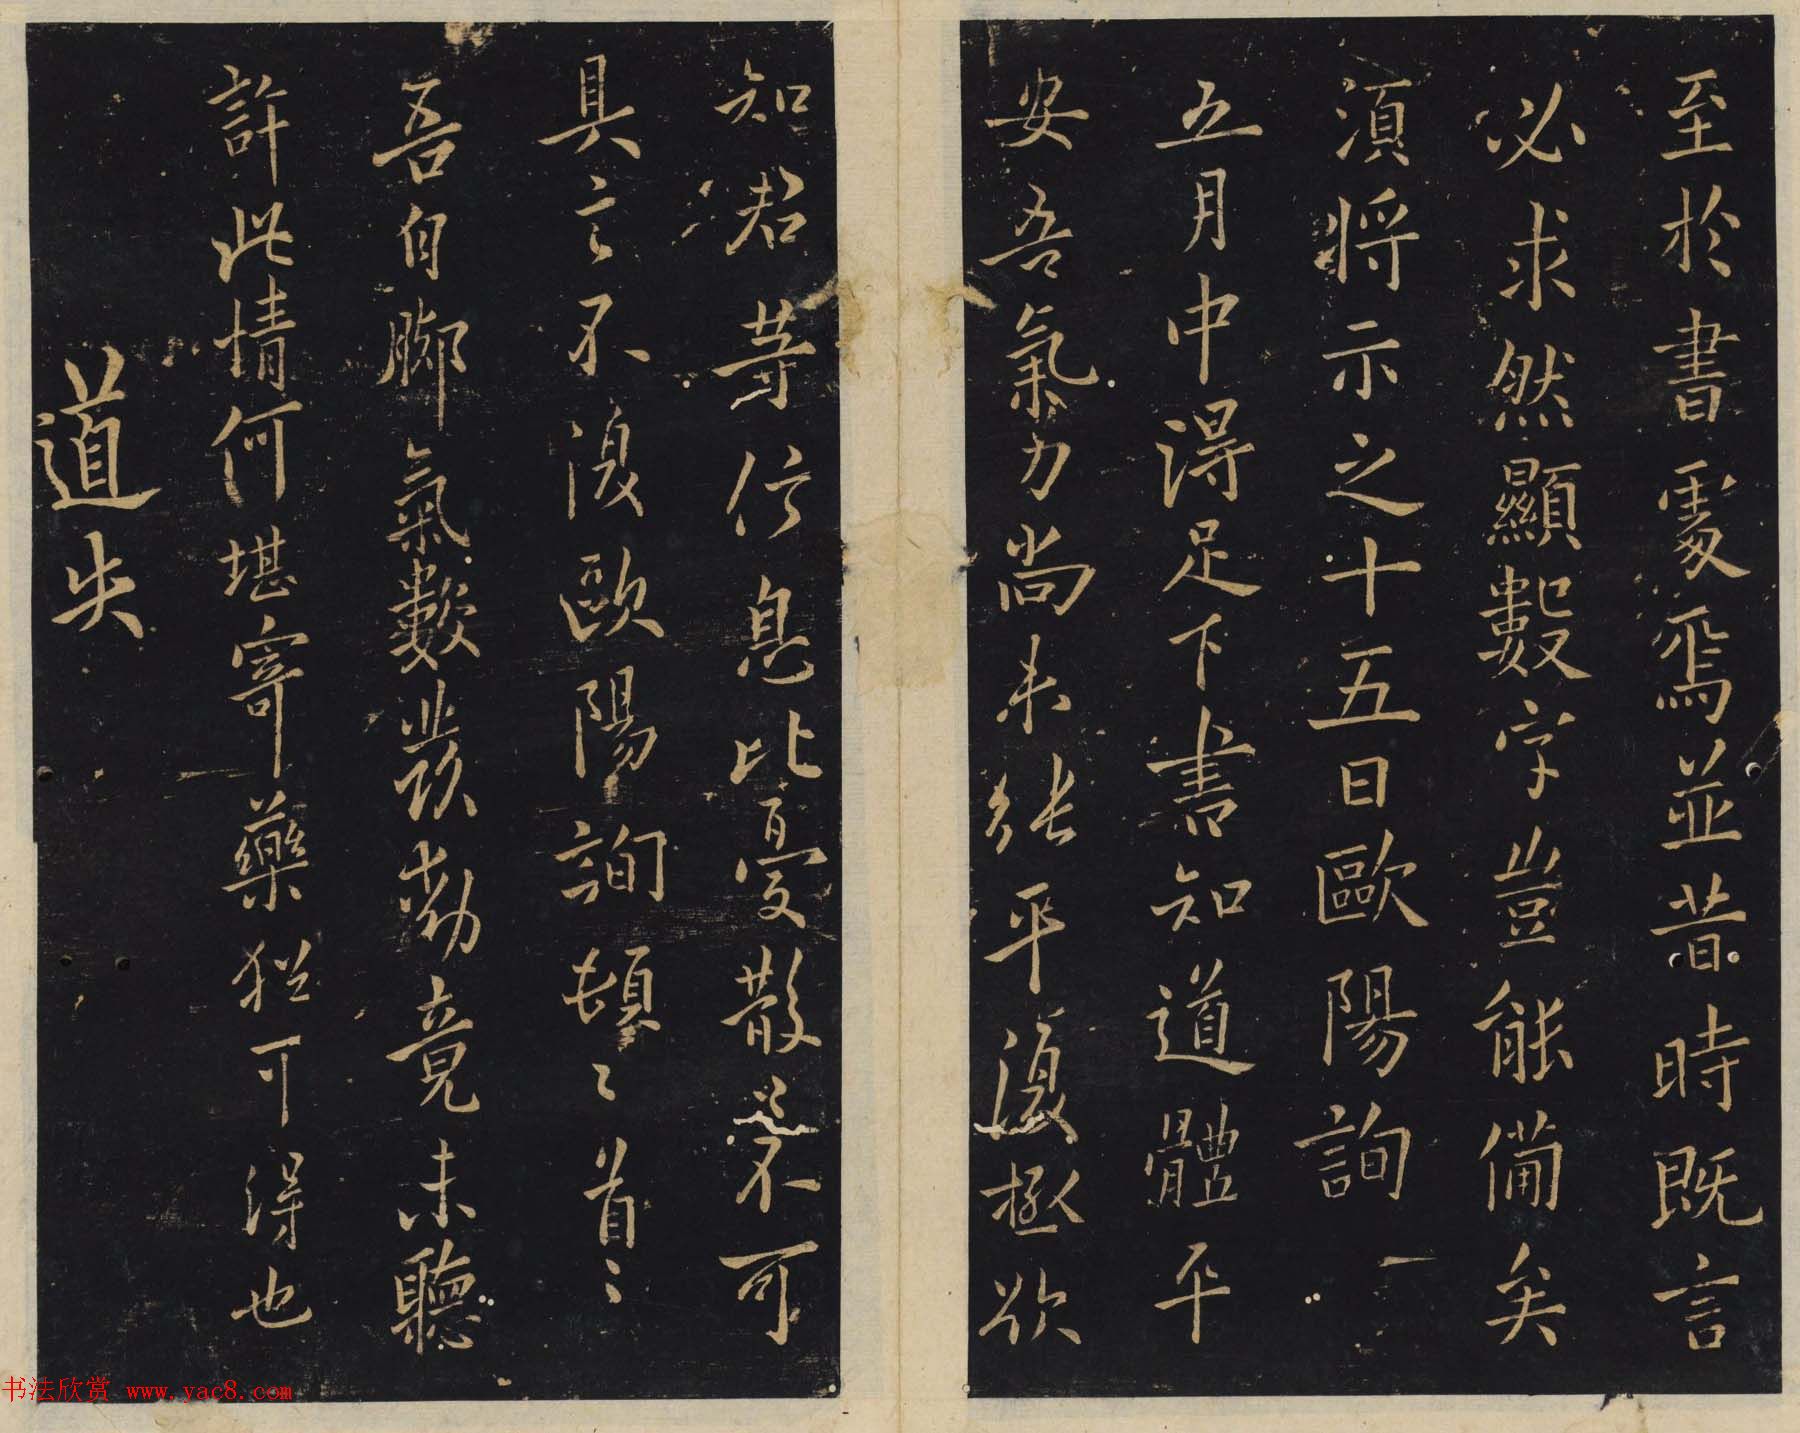 至於書處焉並昔時既言
必求然顯數字豈能備矣
須將示之十五日歐陽詢
五月中得足下書知道體平
安吾氣力尚未能平復極欲
知君等信息比憂散不可
具言不復歐陽詢頓〻首〻
吾自腳氣數發動竟未聽
許此情何堪寄藥猶可得也
道失
书法欣赏 www.yac8.com